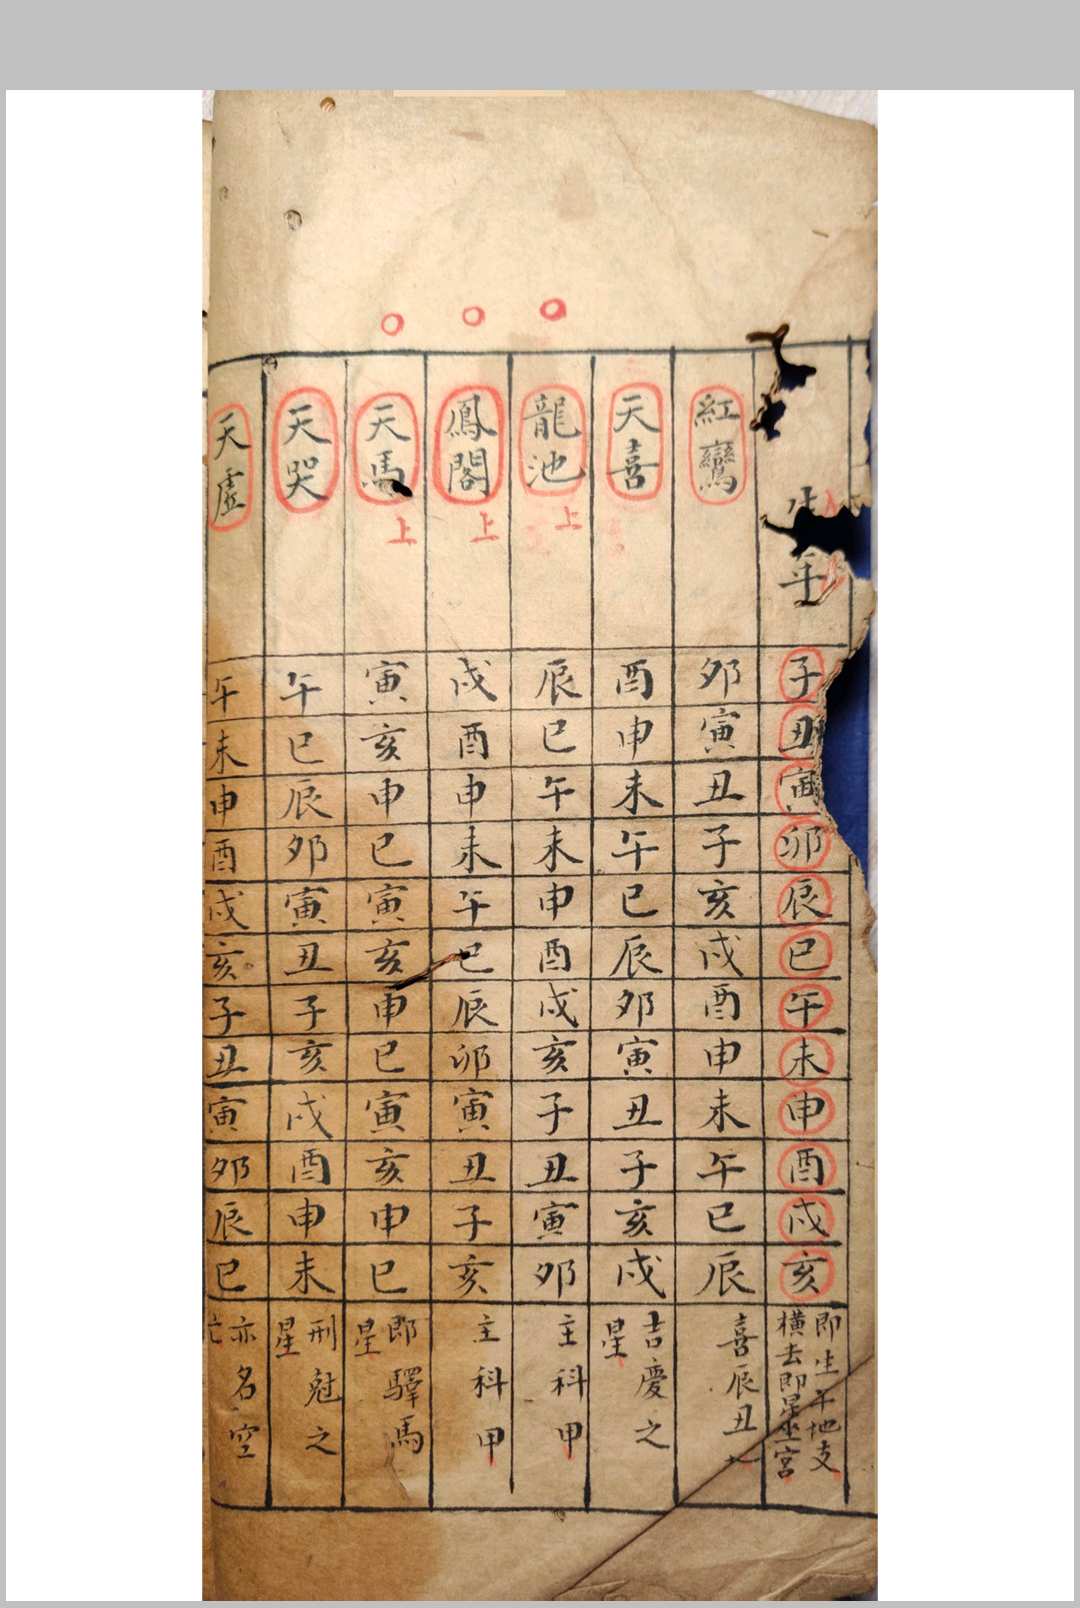 生年 子 丑 寅 卯 辰 巳 午 未 申 酉 戌 亥 即生年地支
橫去即星坐宮
紅鸞 卯 寅 丑 子 亥 戌 酉 申 未 午 巳 辰 喜辰丑
天喜 酉 申 未 午 巳 辰 卯 寅 丑 子 亥 戌 吉慶之
星
龍池 上 辰 巳 午 未 申 酉 戌 亥 子 丑 寅 卯 主科甲
鳳閣 上 戌 酉 申 未 午 巳 辰 卯 寅 丑 子 亥 主科甲
天馬 上 寅 亥 申 巳 寅 亥 申 巳 寅 亥 申 巳 即驛馬
星
天哭 午 巳 辰 卯 寅 丑 子 亥 戌 酉 申 未 刑尅之
星
天虛 午 未 申 酉 戌 亥 子 丑 寅 卯 辰 巳 亦名空
亡